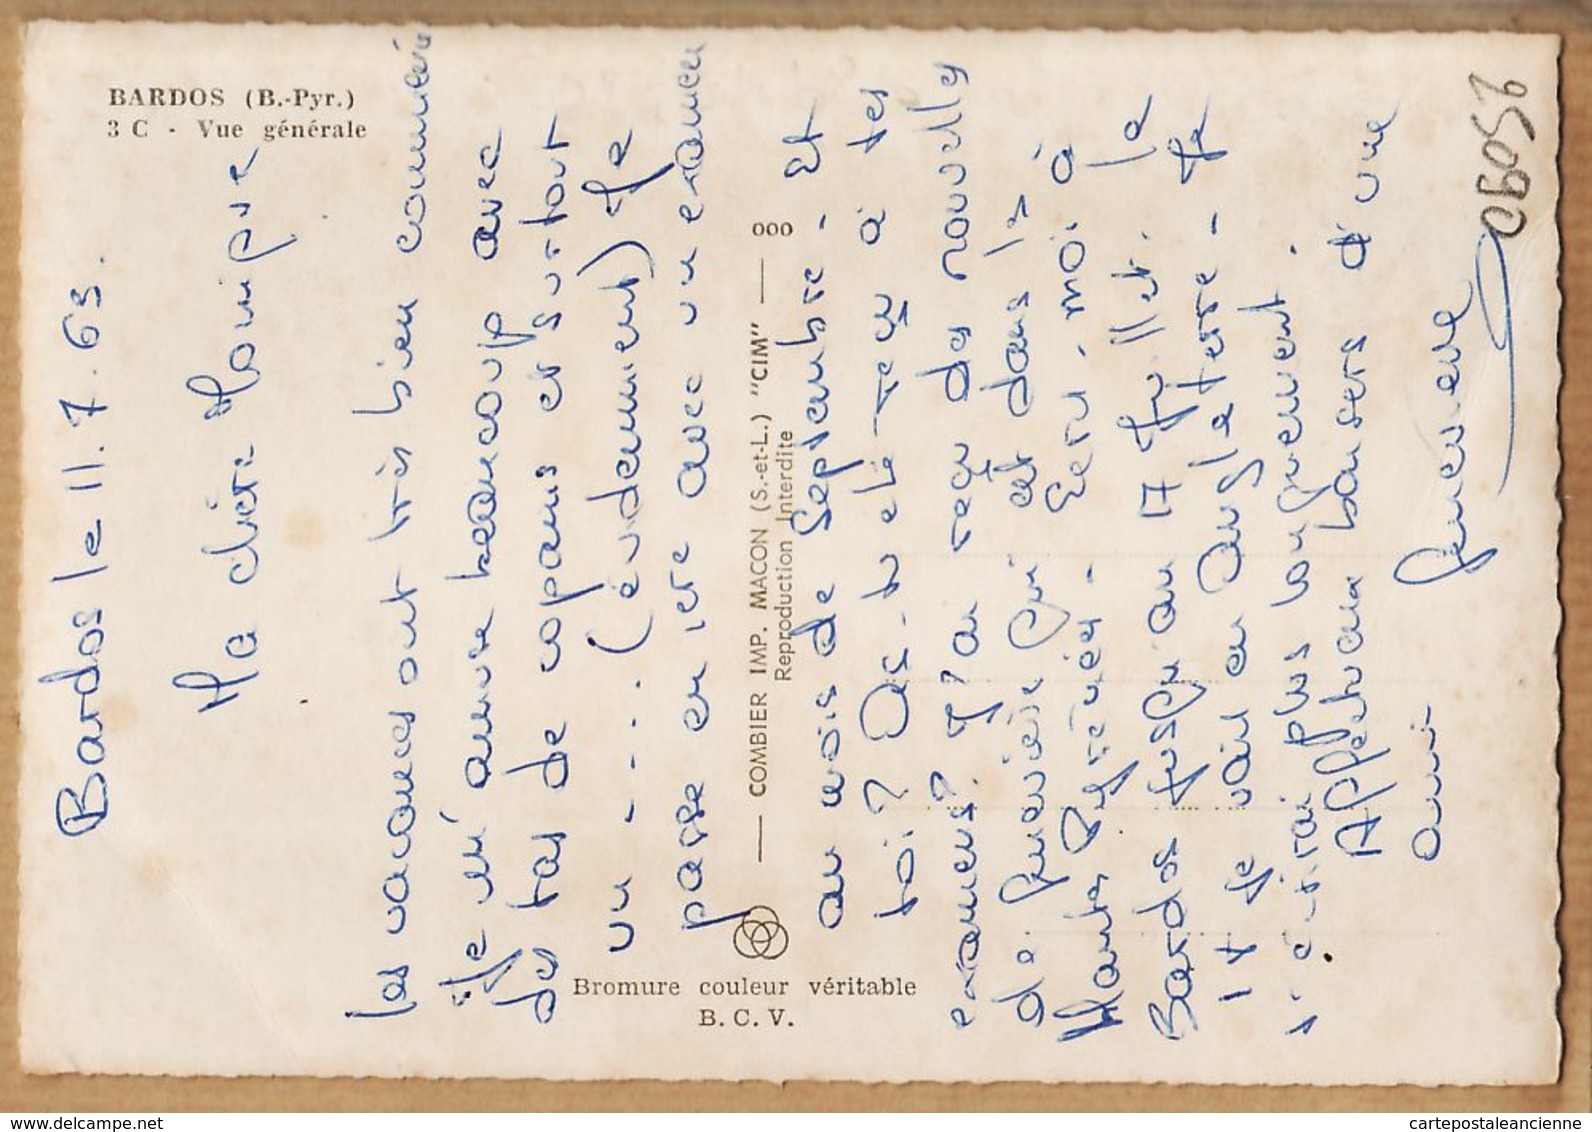 BARDOS (B.-Pyr.)
3 C - Vue générale
Bardos le 11.7.63.
Ma chère Monique
les vacances ont très bien commencé
Je m'amuse beaucoup avec
des tas de copains et surtout
un .... (évidemment) Je
passe en 1ère avec un examen
au mois de septembre - Et
toi? As-tu été reçu à tes
examens? J'ai reçu des nouvelles
de Geneviève qui est dans les
Hautes Pyrénées - Ecris-moi à
Bardos jusqu'au 17 Juillet. le
17 je vais en Angleterre - Je
t'écrirai plus longuement.
Affectueux baisers d'une
amie
Geneviève
25090
COMBIER IMP. MACON (S.-et-L.) "CIM" — 000
Reproduction Interdite
Bromure couleur véritable
B. C. V.
cartepostaleancienne